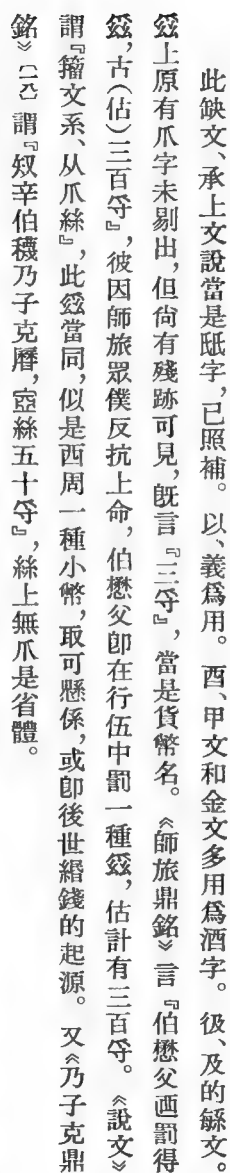 此缺文、承上文說當是瓪字，已照補。以、義爲用。酉、甲文和金文多用爲酒字。彶、及的緐文。
䜌上原有爪字未剔出，但尙有殘跡可見，旣言『三寽』，當是貨幣名。《師旅鼎銘》言『伯懋父迺罰得
䜌，古（估）三百寽』，彼因師旅眾僕反抗上命，伯懋父卽在行伍中罰一種䜌，估計有三百寽。《說文》
謂『籀文系、从爪絲』，此䜌當同，似是西周一種小幣，取可懸係，或卽後世緡錢的起源。又《乃子克鼎
銘》〔一八〕謂『㚸辛伯穠乃子克曆，㝨絲五十寽』，絲上無爪是省體。